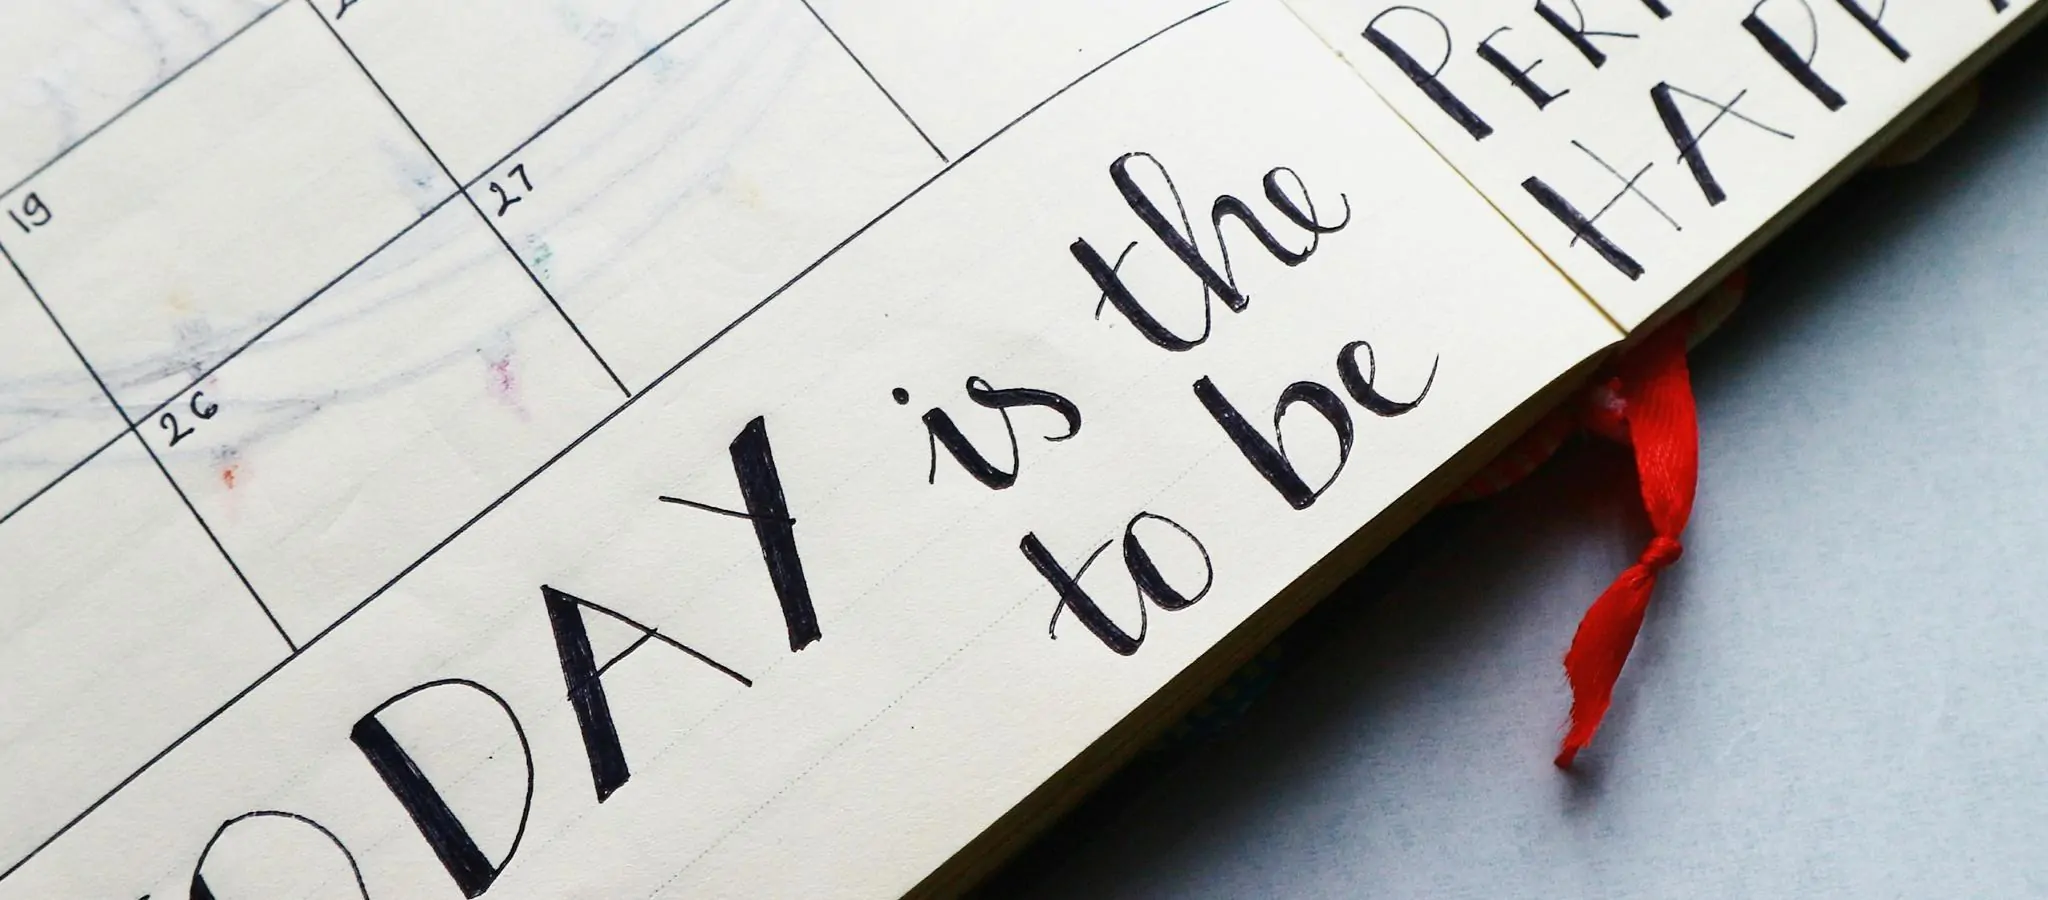 19
26
27
ODAY is the
to be
PER
HAPP